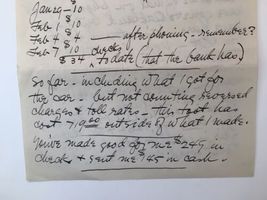 Jan 29 - 10
Feb 1 $10
Feb 4 $4 — after phoning - remember?
Feb 7 $10 checks
$34 to date (that the bank has)
So far - including what I got for
the car - but not counting reversed
charges & toll rates - this toot has
cost 719.00 outside of what I made.
You've made good for me $249 in
checks & sent me $45 in cash.